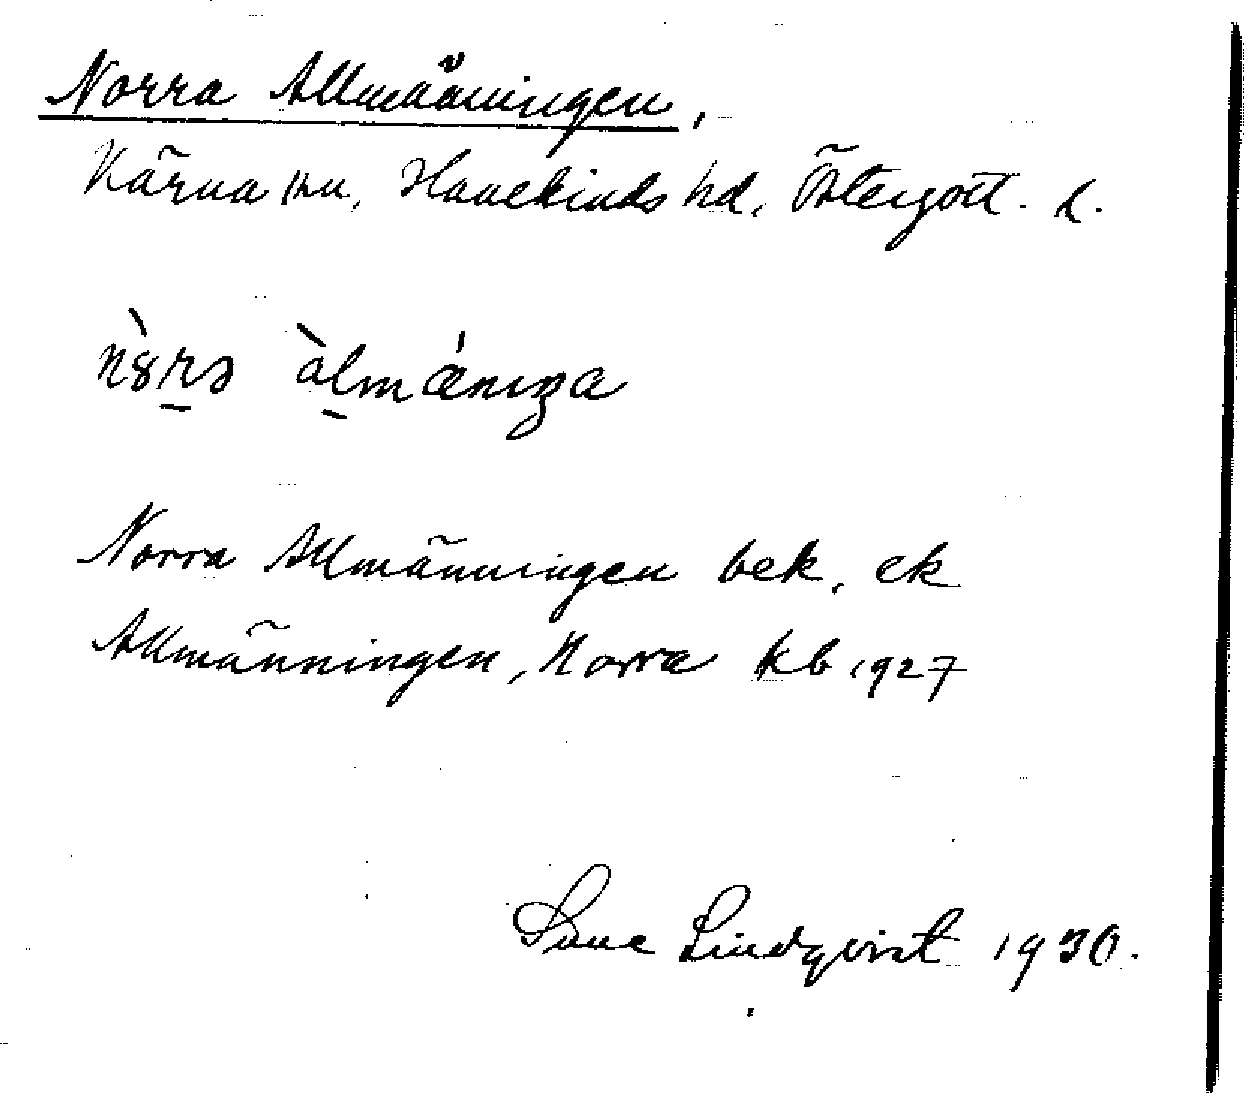 Norra Allmänningen,
Kärna sn, Hanekinds hd, Östergötl. l.
n8rə àlmǽnıŋa
Norra Allmänningen bek, ek
Allmänningen, Norra kb 1927
Sune Lindqvist 1930.